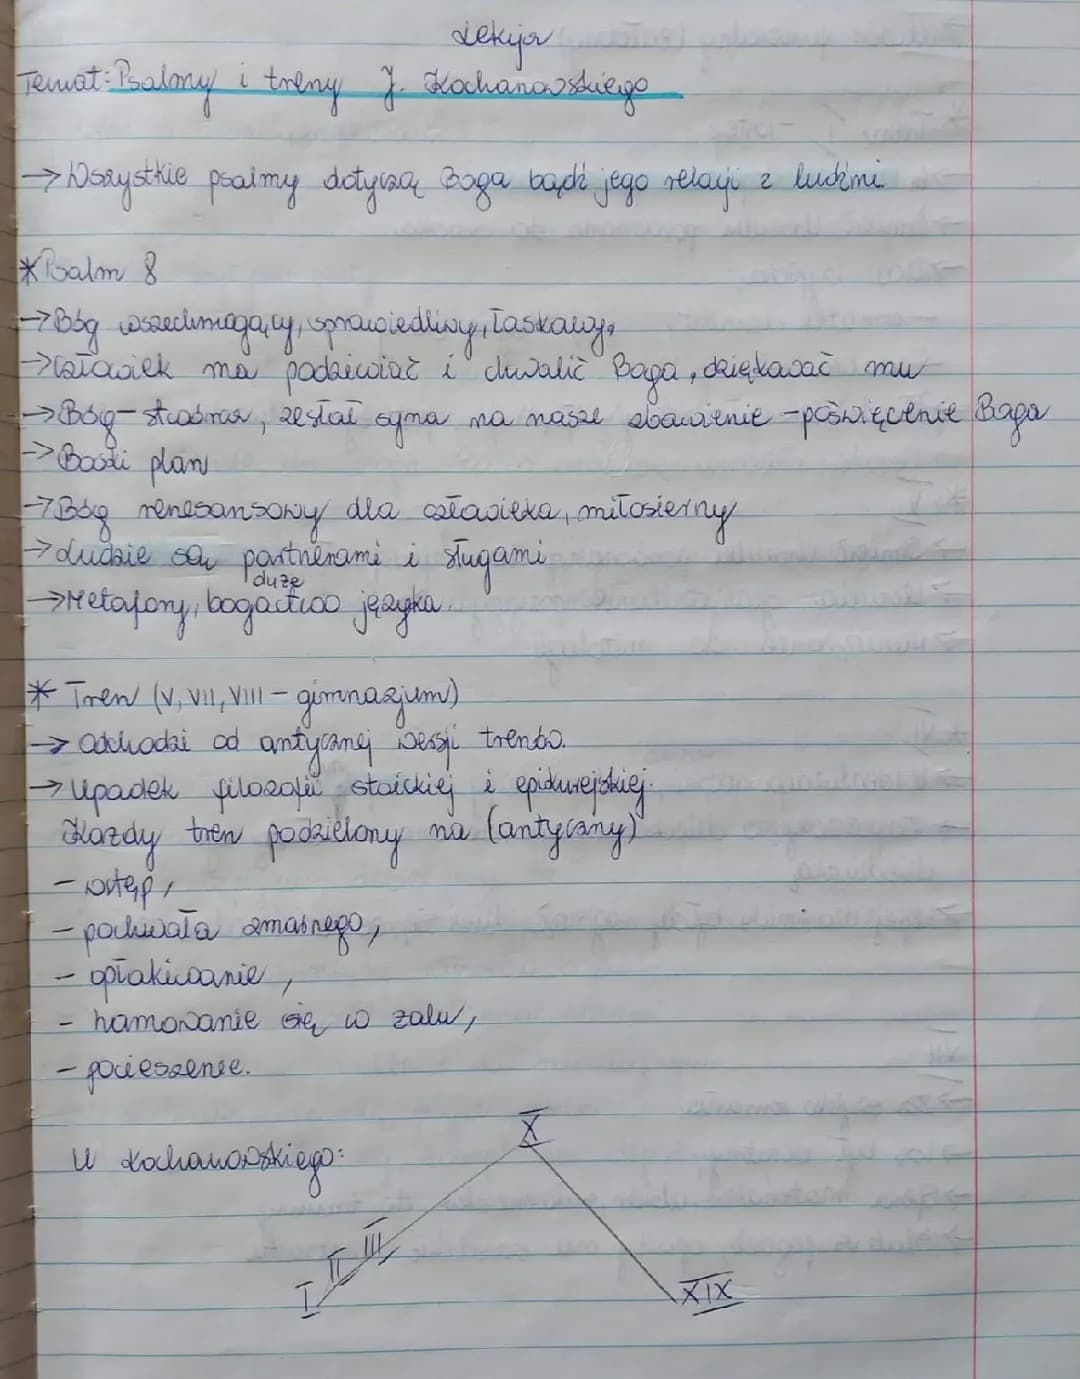 Lekcja
Temat: Psalmy i treny J. Kochanowskiego
→ Wszystkie psalmy dotyczą Boga bądź jego relacji z ludźmi
* Psalm 8
→ Bóg wszechmogący, sprawiedliwy, łaskawy.
→ Człowiek ma podziwiać i chwalić Boga, dziękować mu
→ Bóg - stwórca, zesłał syna na nasze zbawienie - poświęcenie Boga
→ Boski plan
→ Bóg renesansowy dla człowieka, miłosierny
→ Ludzie są partnerami i sługami
→ Metafory, duże bogactwo języka.
* Tren (V, VII, VIII - gimnazjum)
→ Odchodzi od antycznej wersji trenów.
→ Upadek filozofii stoickiej i epikurejskiej.
Każdy tren podzielony na (antyczny)
- wstęp,
- pochwała zmarłego,
- opłakiwanie,
- hamowanie się w żalu,
- pocieszenie.
U Kochanowskiego:
X
III
II
I
XIX